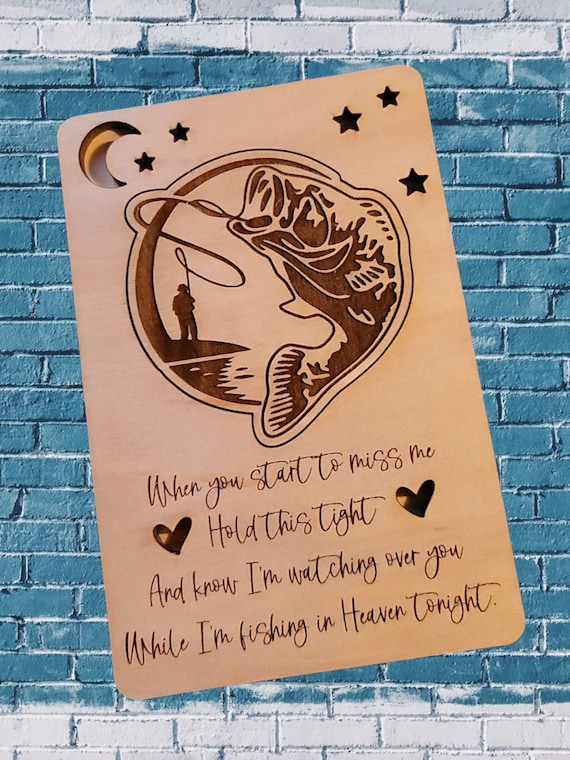 When you start to miss me
Hold this tight
And know I'm watching over you
While I'm fishing in Heaven tonight.